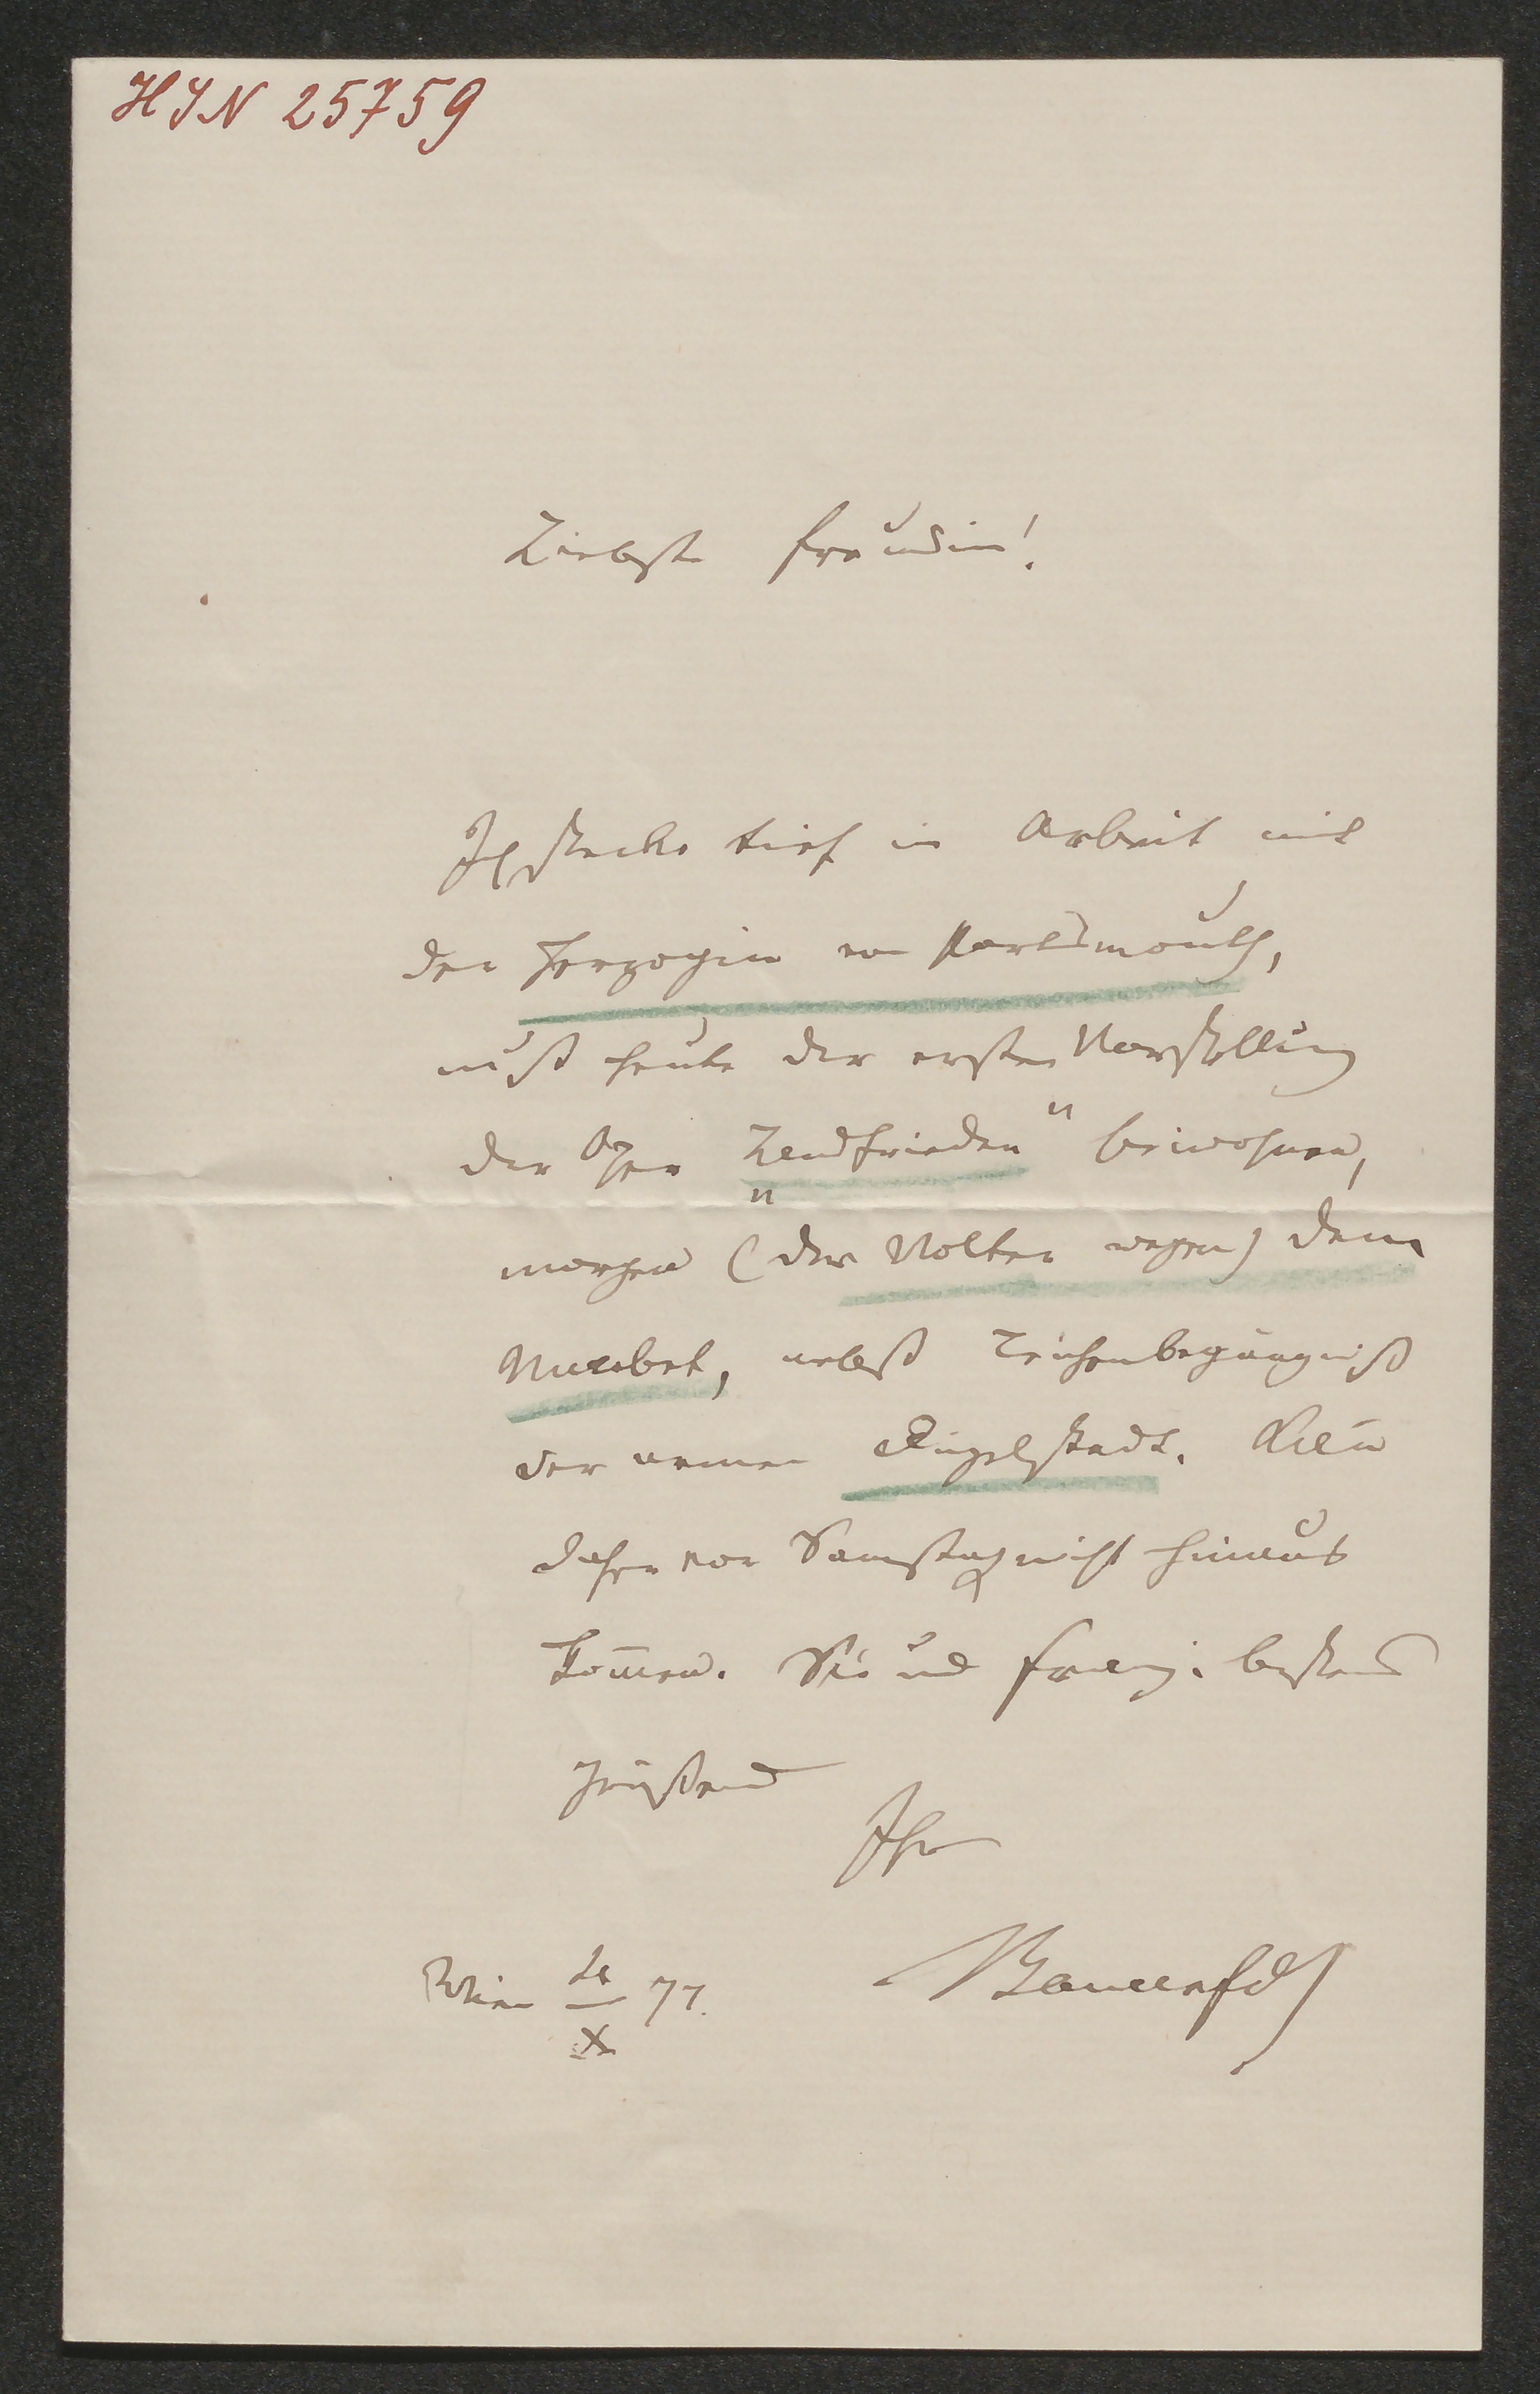 HIN 25759
Liebste Freundin!
Ich stecke tief in Arbeit mit
der Herzogin von Portsmouth,
muß heute der ersten Vorstellung
der Oper „Landfrieden“ beiwohnen,
morgen (der Wolter wegen) dem
Macbet, nebst Leichenbegängniß
der armen Dingelstedt. Kann
daher vor Samstag nicht hinaus
kom̄en. Sie und Franz. bestens
grüßend
Ihr
Bauernfd
Wien 4/X 77.